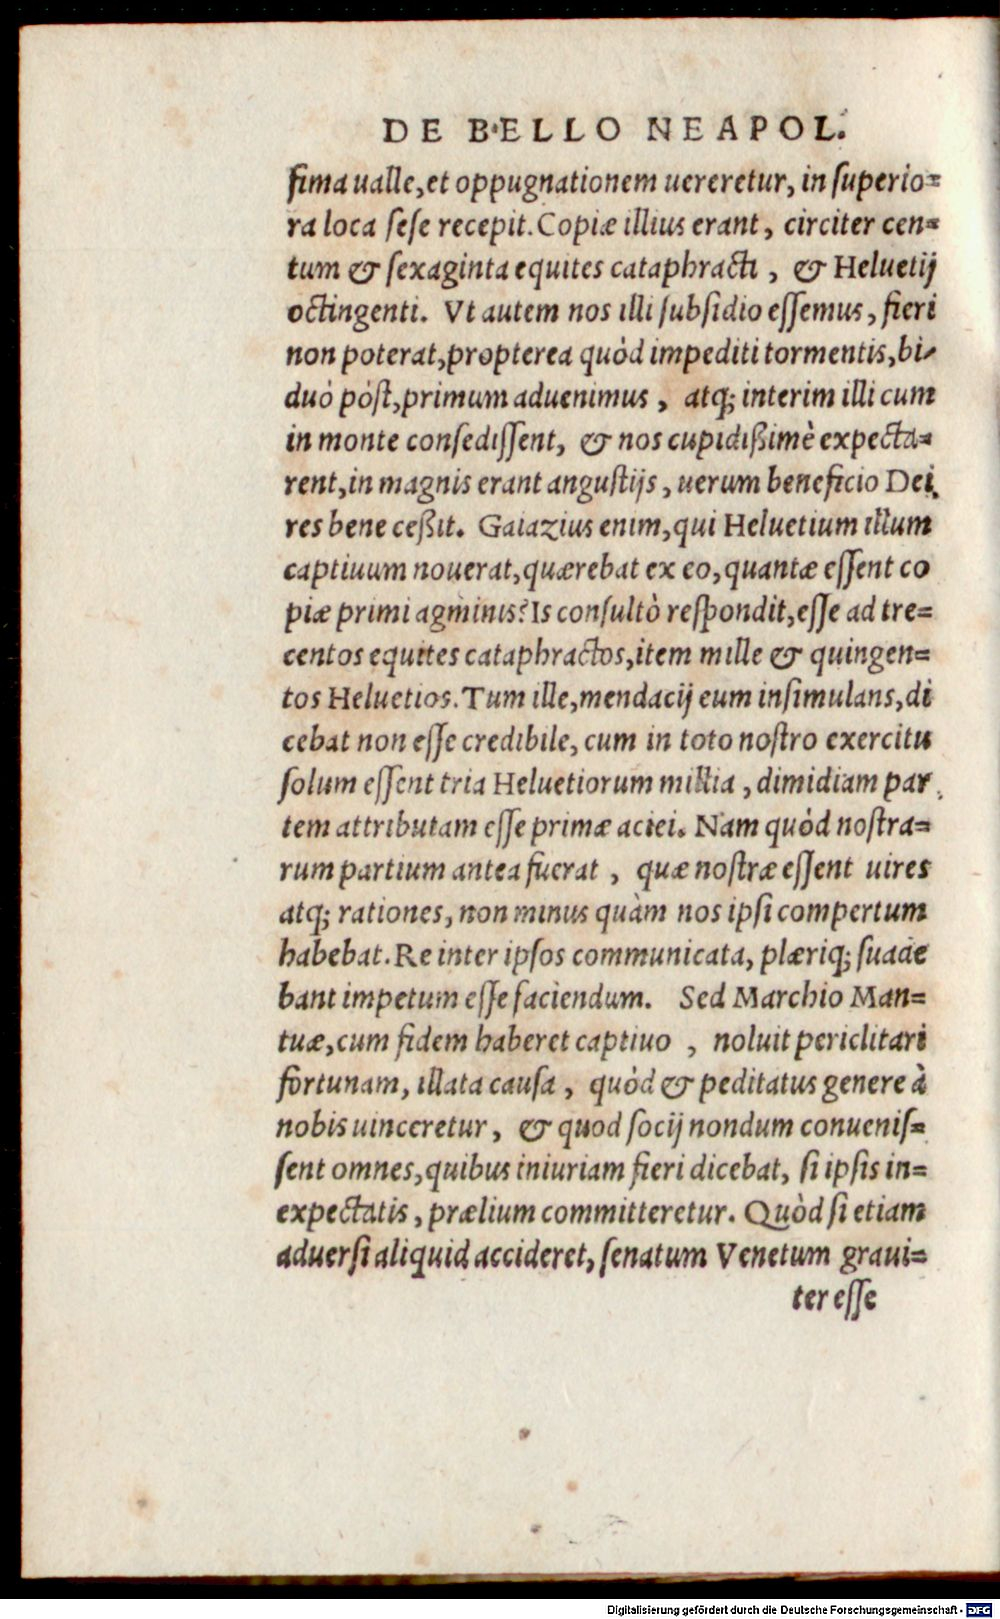 DE BELLO NEAPOL.
ſima ualle, et oppugnationem uereretur, in ſuperio=
ra loca ſeſe recepit. Copiæ illius erant, circiter cen=
tum & ſexaginta equites cataphracti, & Heluetij
octingenti. Vt autem nos illi ſubſidio eſſemus, fieri
non poterat, propterea quòd impediti tormentis, bi-
duò pòſt, primum aduenimus, atq; interim illi cum
in monte conſediſſent, & nos cupidißimè expecta=
rent, in magnis erant anguſtijs, uerum beneficio Dei,
res bene ceßit. Gaiazius enim, qui Heluetium illum
captiuum nouerat, quærebat ex eo, quantæ eſſent co
piæ primi agminis? Is conſultò reſpondit, eſſe ad tre=
centos equites cataphractos, item mille & quingen=
tos Heluetios. Tum ille, mendacij eum inſimulans, di
cebat non eſſe credibile, cum in toto noſtro exercitu
ſolum eſſent tria Heluetiorum millia, dimidiam par
tem attributam eſſe primæ aciei. Nam quòd noſtra=
rum partium antea fuerat, quæ noſtræ eſſent uires
atq; rationes, non minus quàm nos ipſi compertum
habebat. Re inter ipſos communicata, plæriq; ſuade
bant impetum eſſe faciendum. Sed Marchio Man=
tuæ, cum fidem haberet captiuo, noluit periclitari
fortunam, illata cauſa, quòd & peditatus genere à
nobis uinceretur, & quod ſocij nondum conueniſ=
ſent omnes, quibus iniuriam fieri dicebat, ſi ipſis in=
expectatis, prælium committeretur. Quòd ſi etiam
aduerſi aliquid accideret, ſenatum Venetum graui=
ter eſſe
Digitalisierung gefördert durch die Deutsche Forschungsgemeinschaft - DFG